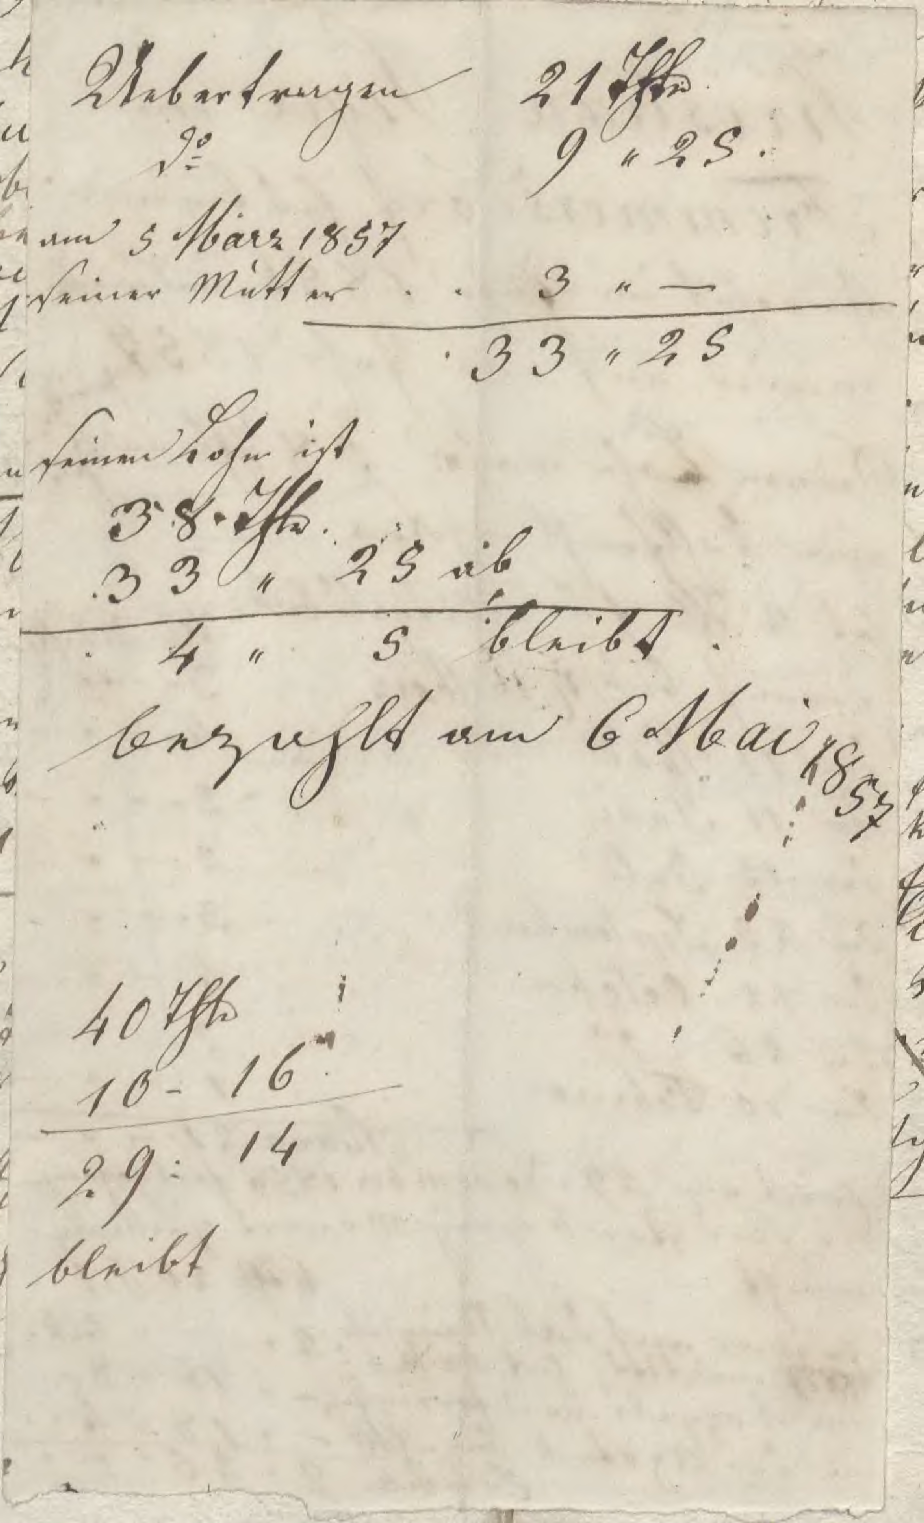 Uebertragen 21 Thlr.
do 9 " 25.
am 5 März 1857
seiner Mutter . . 3 " —
33 " 25
seinen Lohn ist
38. Thlr.
33 " 25 ab
4 " 5 bleibt.
bezahlt am 6 Mai 1857
40 Thlr
10 - 16.
29: 14
bleibt